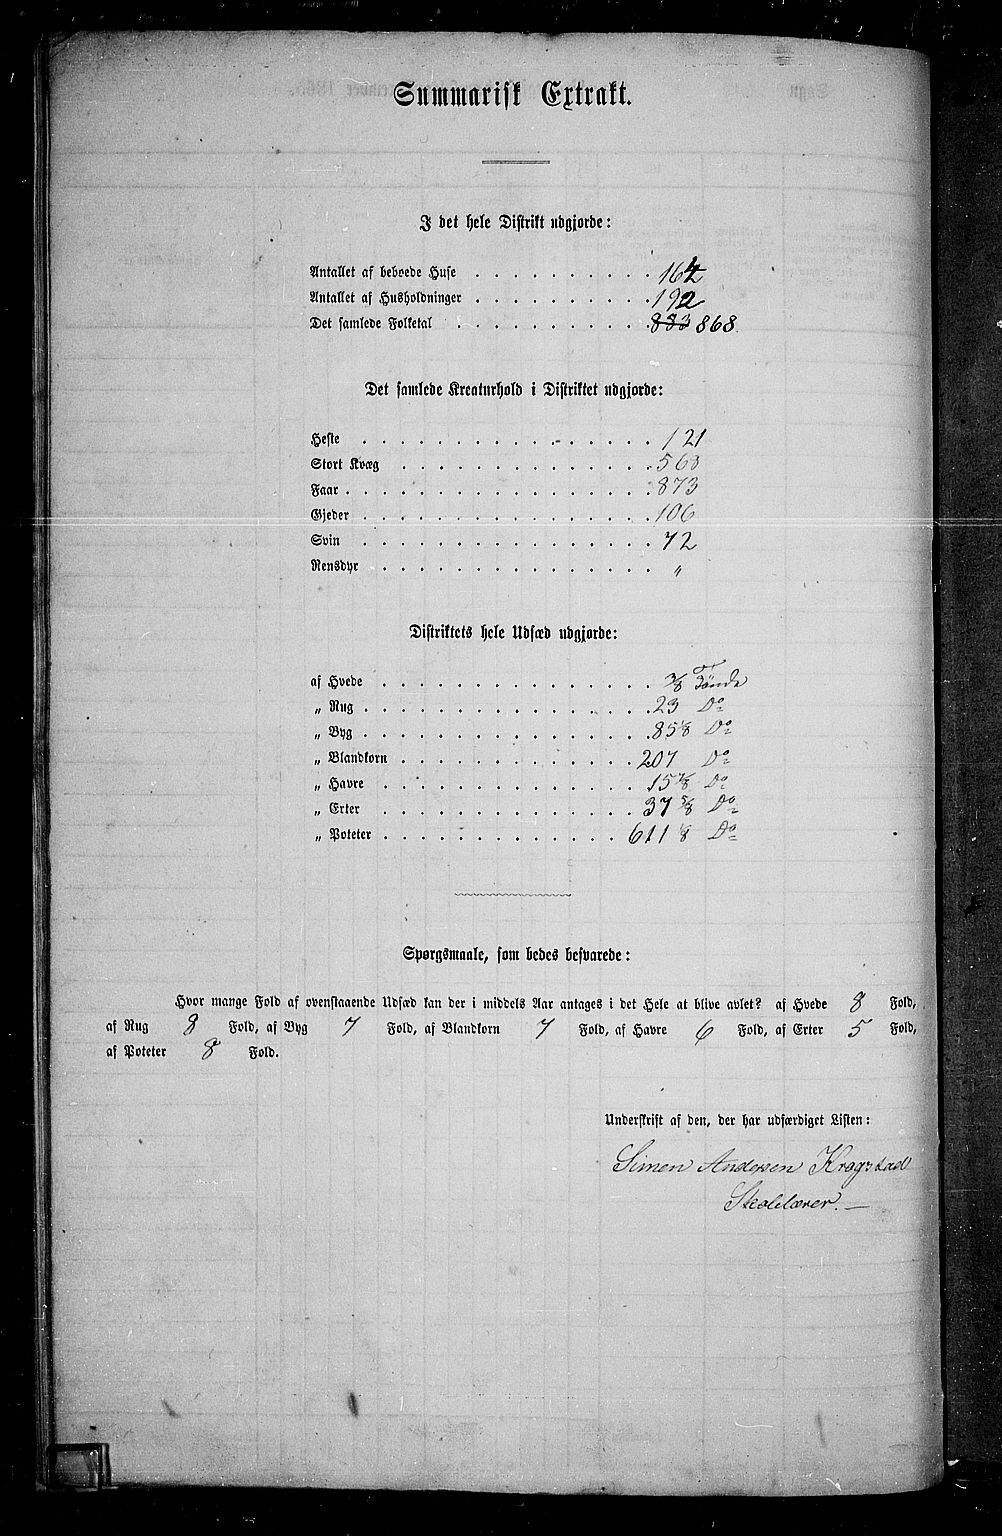 Summarisk Extrakt.
I det hele Distrikt udgjorde:
Antallet af beboede Huse . . . . . . . . . . 164
Antallet af Husholdninger . . . . . . . . . . 192
Det samlede Folketal . . . . . . . . . . . 883 868
Det samlede Kreaturhold i Distriktet udgjorde:
Heste . . . . . . . . . . . . . . . . 121
Stort Kvæg . . . . . . . . . . . . . . 563
Faar . . . . . . . . . . . . . . . . . 873
Gjeder . . . . . . . . . . . . . . . . 106
Svin . . . . . . . . . . . . . . . . 72
Rensdyr . . . . . . . . . . . . . . . „
Distriktets hele Udsæd udgjorde:
af Hvede . . . . . . . . . . . . . . . Tønde
„ Rug . . . . . . . . . . . . . . . . 23 Do
„ Byg . . . . . . . . . . . . . . . . 85 1/8 Do
„ Blandkorn . . . . . . . . . . . . . 207 Do
„ Havre . . . . . . . . . . . . . . 15 Do
„ Erter . . . . . . . . . . . . . . 37 5/8 Do
„ Poteter . . . . . . . . . . . . . 611 1/8 Do
Spørgsmaale, som bedes besvarede:
Hvor mange Fold af ovenstaaende Udsæd kan der i middels Aar antages i det Hele at blive avlet? af Hvede 8 Fold,
af Rug 8 Fold, af Byg 7 Fold, af Blandkorn 7 Fold, af Havre 6 Fold, af Erter 5 Fold,
af Poteter 8 Fold.
Underskrift af den, der har udfærdiget Listen:
Simen Andersen Kragstad
Skolelærer.